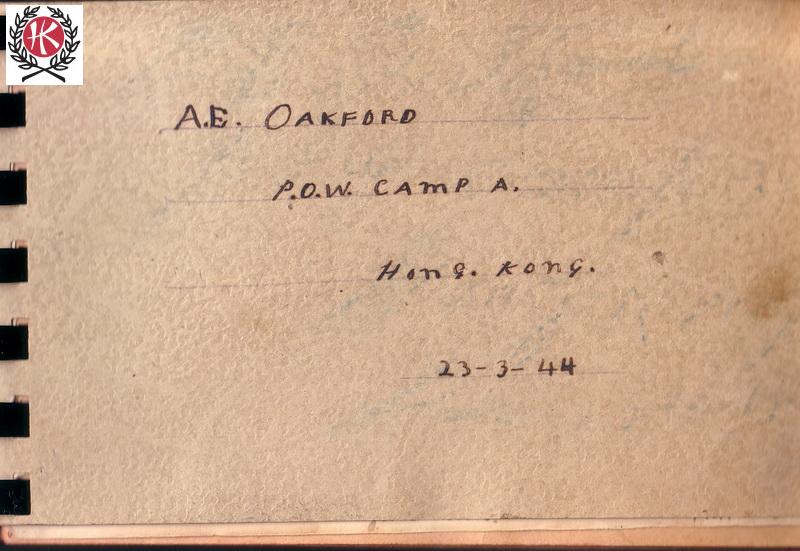 HK
A.E. OAKFORD
P.O.W. CAMP A.
HONG. KONG.
23-3-44